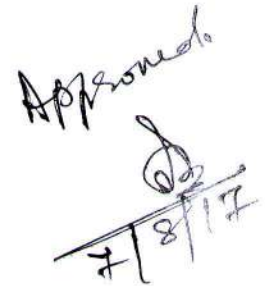 Approved.
7/8/17